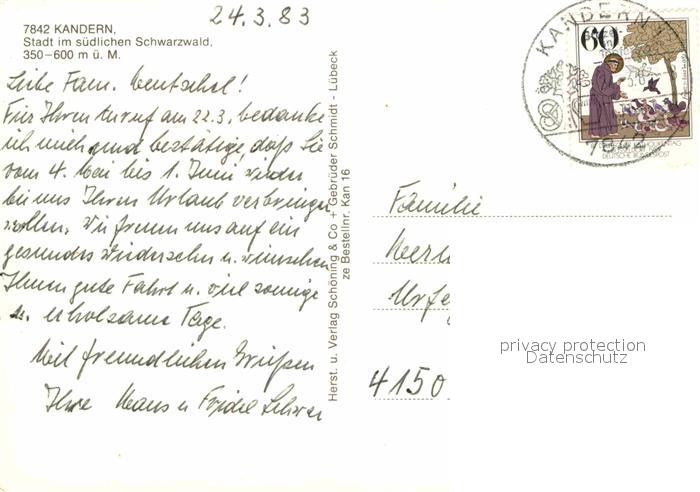 24.3.83
7842 KANDERN,
Stadt im südlichen Schwarzwald,
350–600 m ü. M.
Liebe Fam.
Für Ihren Anruf am 22.3. bedanke
ich mich und bestätige, daß Sie
vom 4. Mai bis 1. Juni wieder
bei uns Ihren Urlaub verbringen
wollen. Wir freuen uns auf ein
gesundes Wiedersehn u. wünschen
Ihnen gute Fahrt u. viel sonnige
u. erholsame Tage.
Mit freundlichen Grüßen
Ihre Hans u
Herst. u. Verlag Schöning & Co + Gebrüder Schmidt - Lübeck
ze Bestellnr. Kan 16
KANDERN
60
DEUTSCHE BUNDESPOST
7842
Familie
4150
privacy protection
Datenschutz